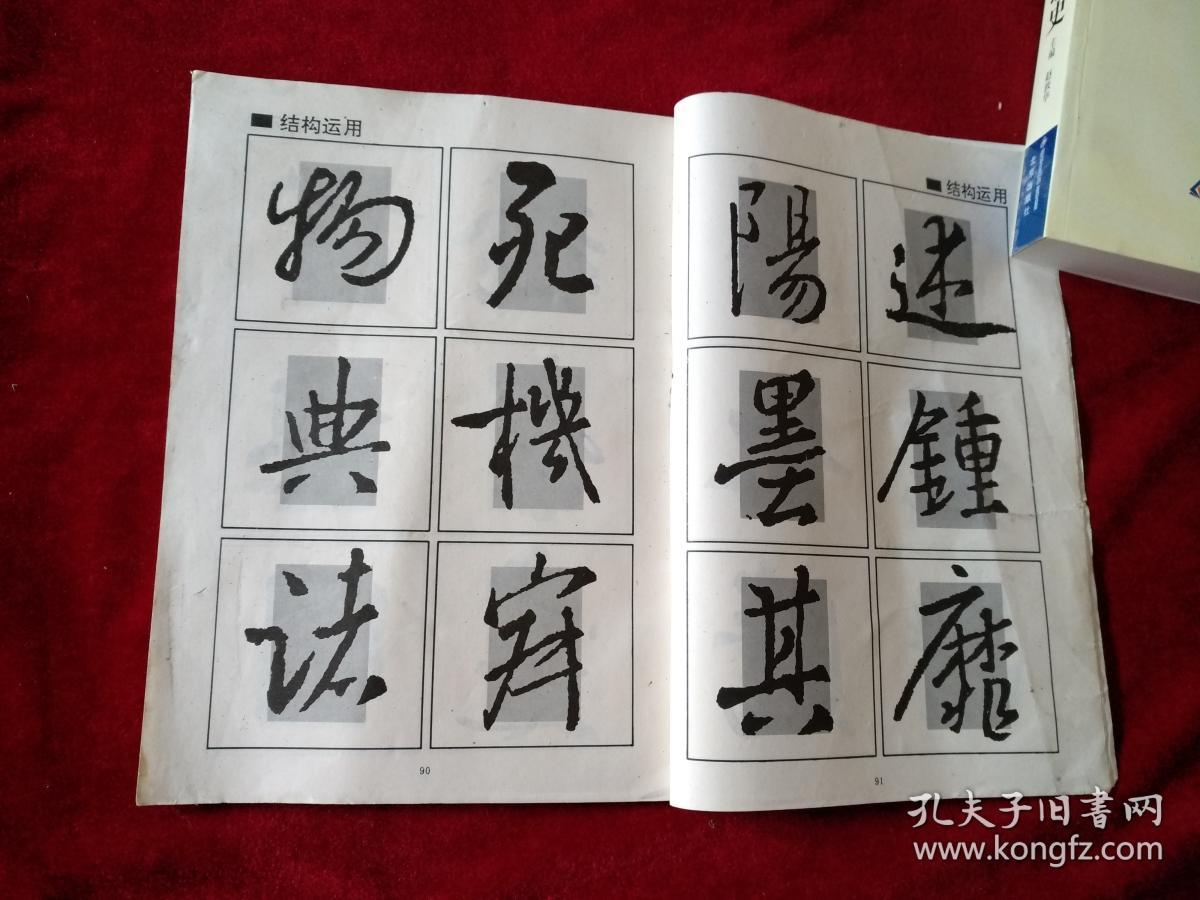 ■ 结构运用
物 死
典 機
诸
90
■ 结构运用
陽 述
墨 鍾
其 靡
91
史
孔夫子旧书网
www.kongfz.com